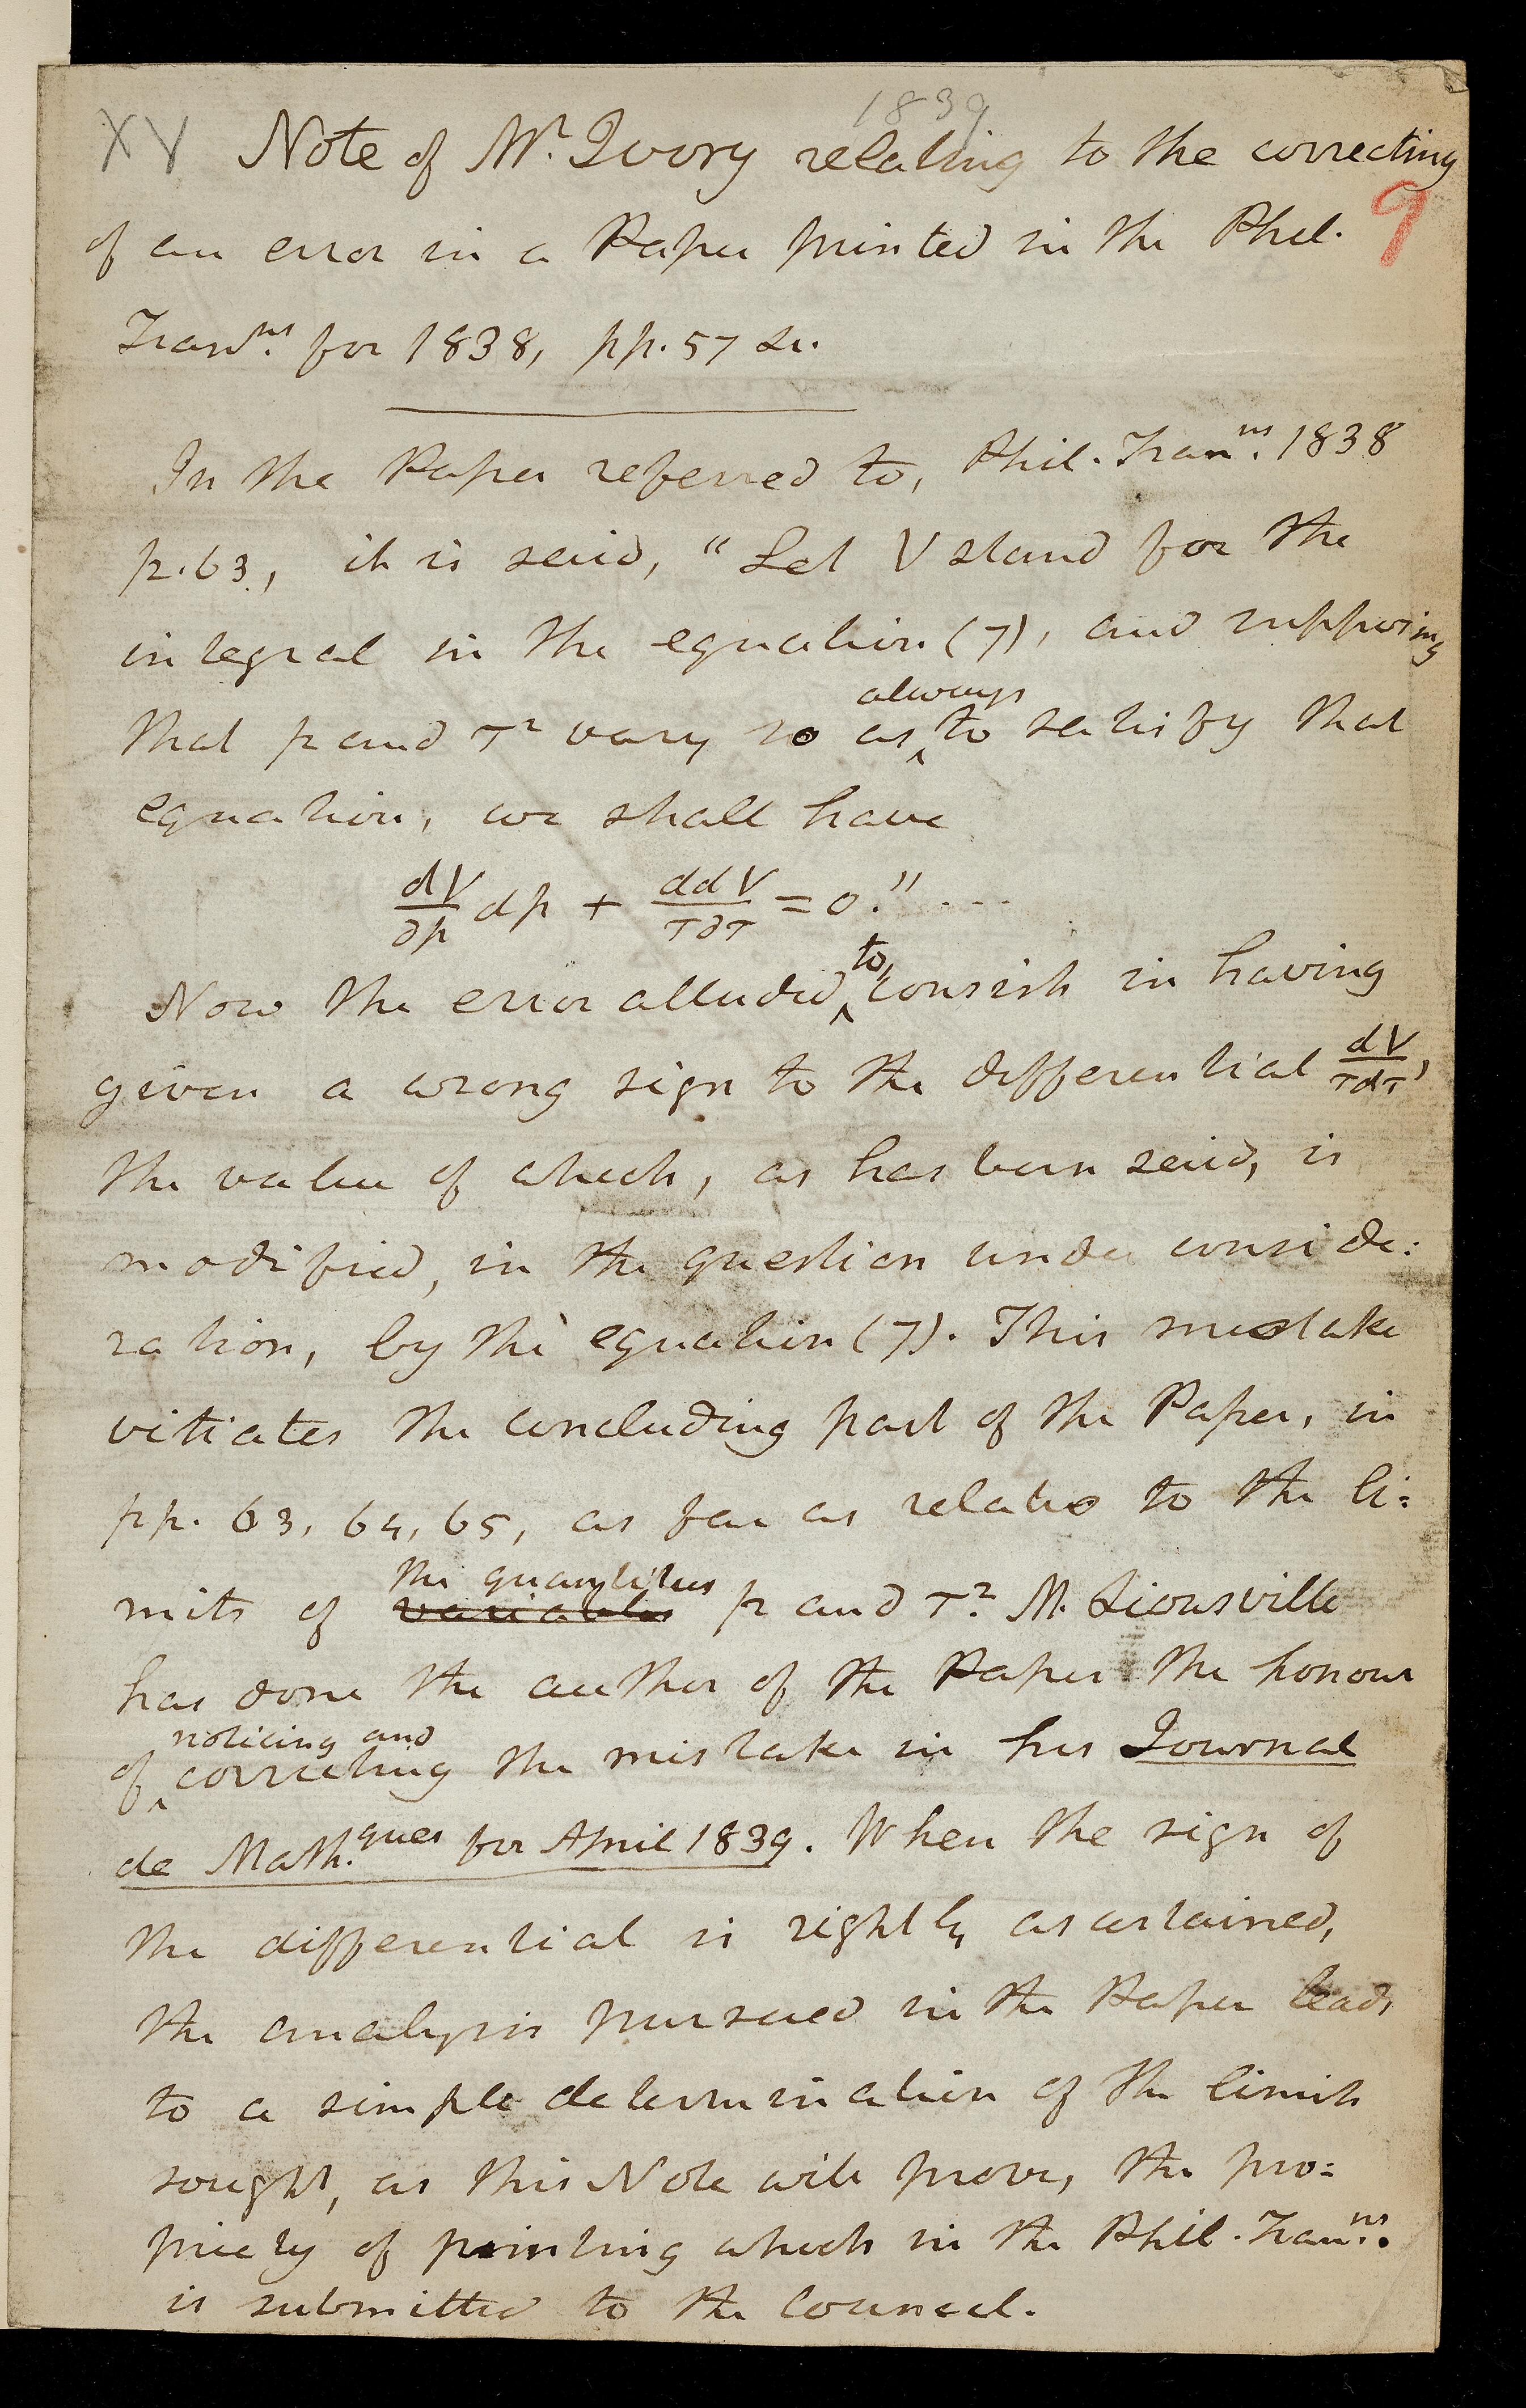 1839
XV Note of Mr. Ivory relating to the correcting
9
of an error in a Paper printed in the Phil.
Tranns. for 1838, pp. 57 &c.
In the Paper referred to, Phil. Tranns. 1838
p. 63, it is said, "Let V stand for the
integral in the equation (7), and supposing
that p and τ² vary so as always to satisfy that
equation, we shall have
dV/dp dp + ddV/τdτ = 0." ...
Now the error alluded to, consists in having
given a wrong sign to the differential dV/τdτ,
the value of which, as has been said, is
modified, in the question under conside:
ration, by the equation (7). This mistake
vitiates the concluding part of the Paper, in
pp. 63, 64, 65, as far as relates to the li:
mits of variables the quantities p and τ². M. Liousville
has done the author of the Paper the honour
of noticing and correcting the mistake in his Journal
de Math.ques for April 1839. When the sign of
the differential is rightly ascertained,
the analysis pursued in the Paper leads
to a simple determination of the limits
sought, as this Note will prove, the pro:
priety of printing which in the Phil. Tranns.
is submitted to the Council.